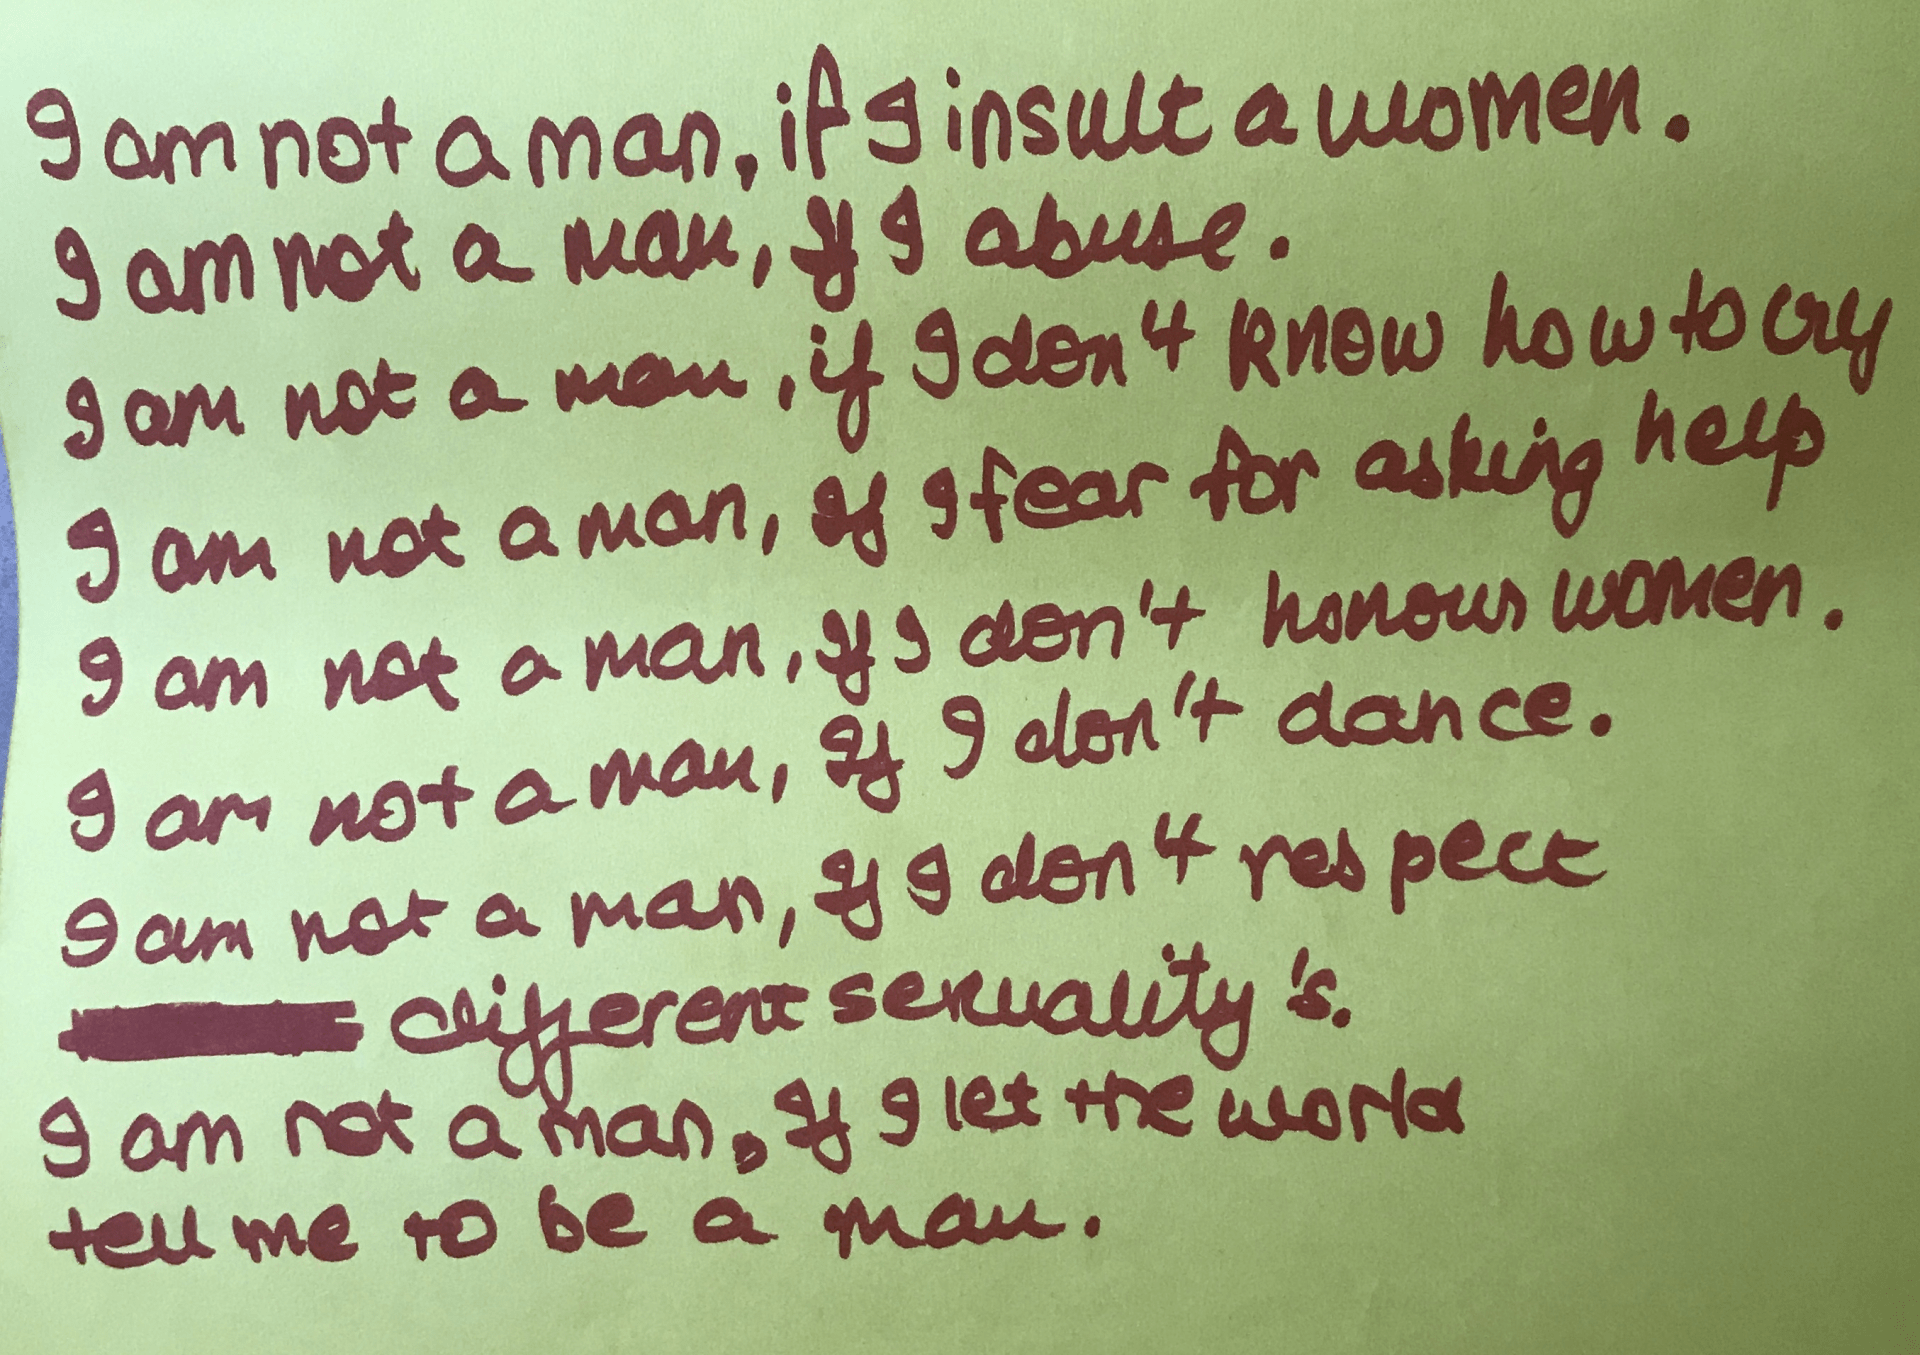 I am not a man, if I insult a women.
I am not a man, if I abuse.
I am not a man, if I don't know how to cry
I am not a man, if I fear for asking help
I am not a man, if I don't honour women.
I am not a man, if I don't dance.
I am not a man, if I don't respect
different sexuality's.
I am not a man, if I let the world
tell me to be a man.